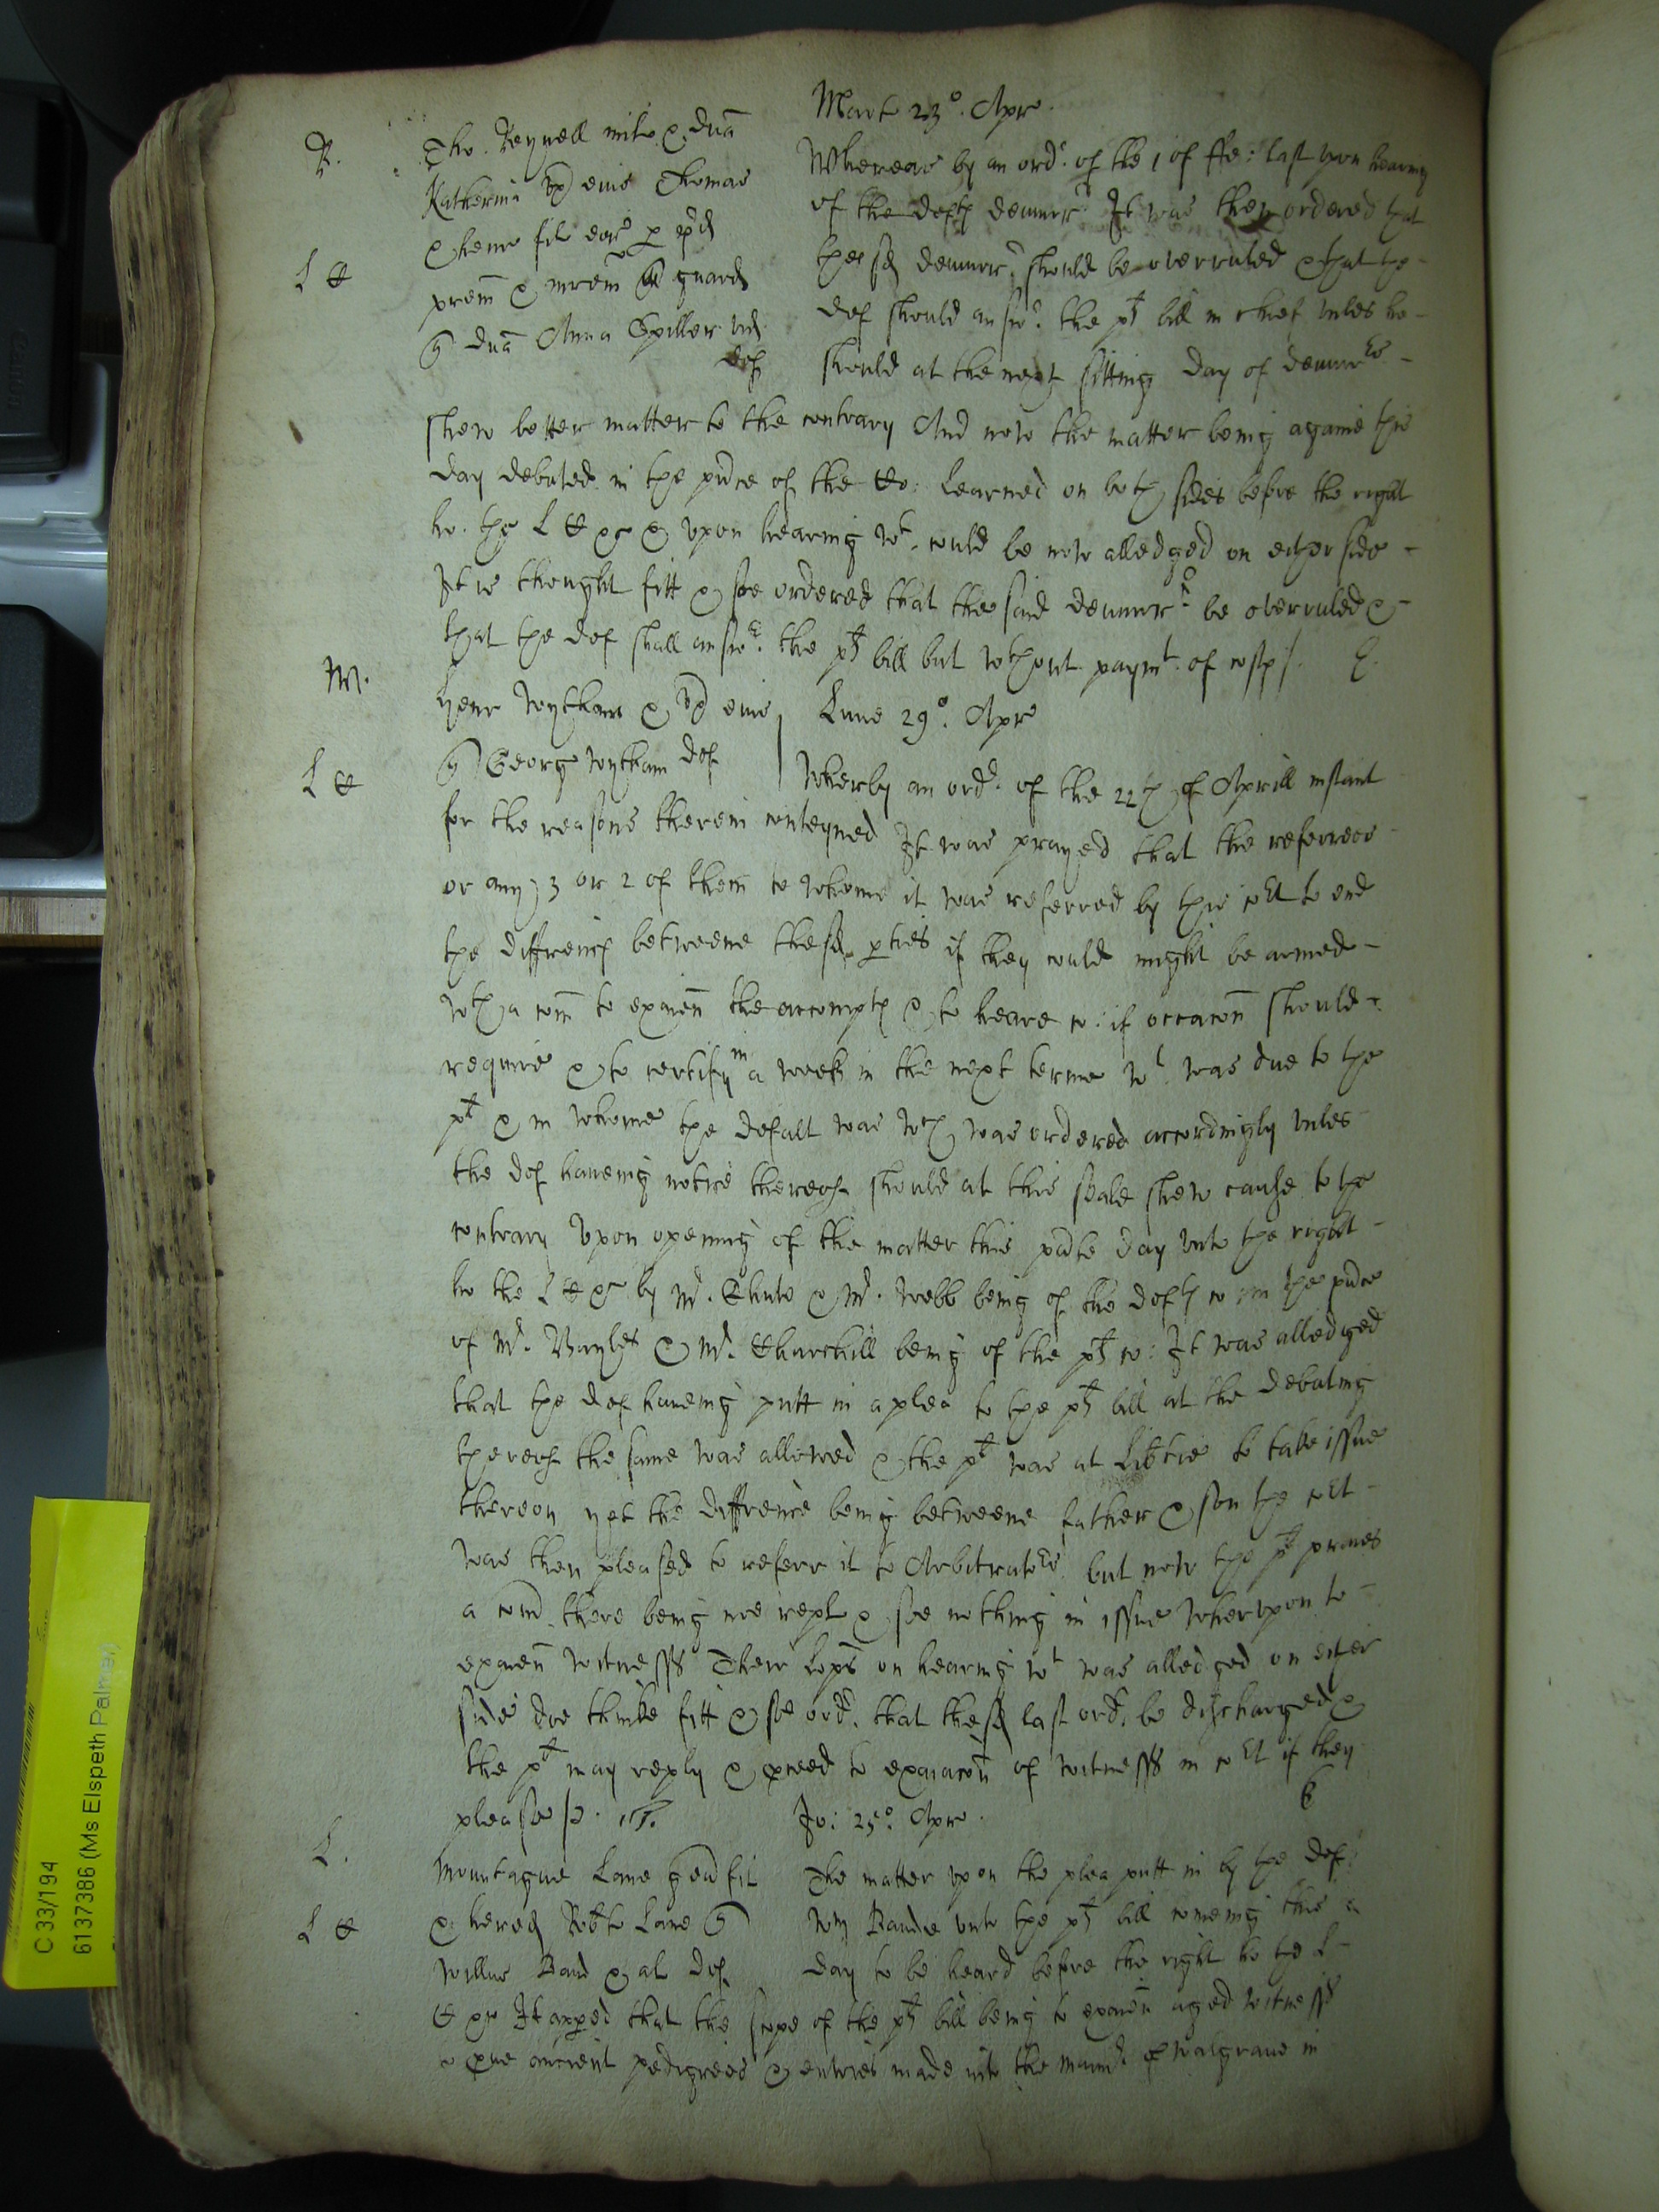 Marte 23º. Apr
R. Tho. Reynell mil & dna
Katherina vx eius Thomas
& henr fil eor p
prem & mrem guard
dna Anna Spiller vid
def
L C
Whereas by an ordr. of the 1 of ffe: last vpon hearing
of the defts demurr. It was then ordered that
the sd demurr. should be overruled & that the
def should answ. the plts bill in chief vnles he
should at the next sitting day of demurrs
shew better matter to the contrary And now the matter being againe this
day debated in the pnce of the Co: learned on both sides before the right
ho. the L C & vpon hearing wt. could be now alledged on either side
It is thought fitt & soe ordered that the said demurr. be overruled &
that the def shall answ. the plts bill but wthout paymt. of costs /. E.
W. henr Wytham & vx eius
L C George Wytham def
Lune 29º. Apr
Wherby an ordr. of the 22th of Aprill instant
for the reasons therein conteyned It was prayed that the referrees
or any 3 or 2 of them to whome it was referred by this cort to end
the diffrence betweene the sd pties if they could might be armed
wth a com to examn the accompts & to heare co: if occacon should
require & to certify in a week in the next terme wt. was due to the
plt & in whome the defalt was wch was ordered accordingly vnles
the def haueing notice thereof should at this seale shew cause to the
contrary Vpon opening of the matter this pnte day vnto the right
ho the L C by Mr. Chute & Mr. Webb being of the defts co in the pnce
of Mr. & Mr. Churchill being of the plts co: It was alledged
that the def haueing putt in a plea to the plts bill at the debating
thereof the same was allowed & the plt was at libtie to take issue
thereon yet the diffrence being betweene father & son the cort
was then pleased to referr it to Arbitrators but now the plt praies
a com. there being noe repl & soe nothing in issue wherevpon to
examn witnesses Their lops on hearing wt was alledged on either
side doe thinke fitt & soe ordr. that the sd last ordr. be discharged &
the plt may reply & pceed to examacon of witnesses in cort if they
please
L. Mountague Lane gen fil
L C & hered Robto Lane
Willm Band & al def
Jo: 25º. Apr
The matter vpon the plea putt in by the def
Wm Bande vnto the plts bill comeing this
day to be heard before the right ho the L
C It appeed that the scope of the plts bill being to examn aged witnesses
to pue ancient pedigrees & entries made into the mannr of Walgraue in
C 33/194
6137386 (Ms Elspeth Palmer)